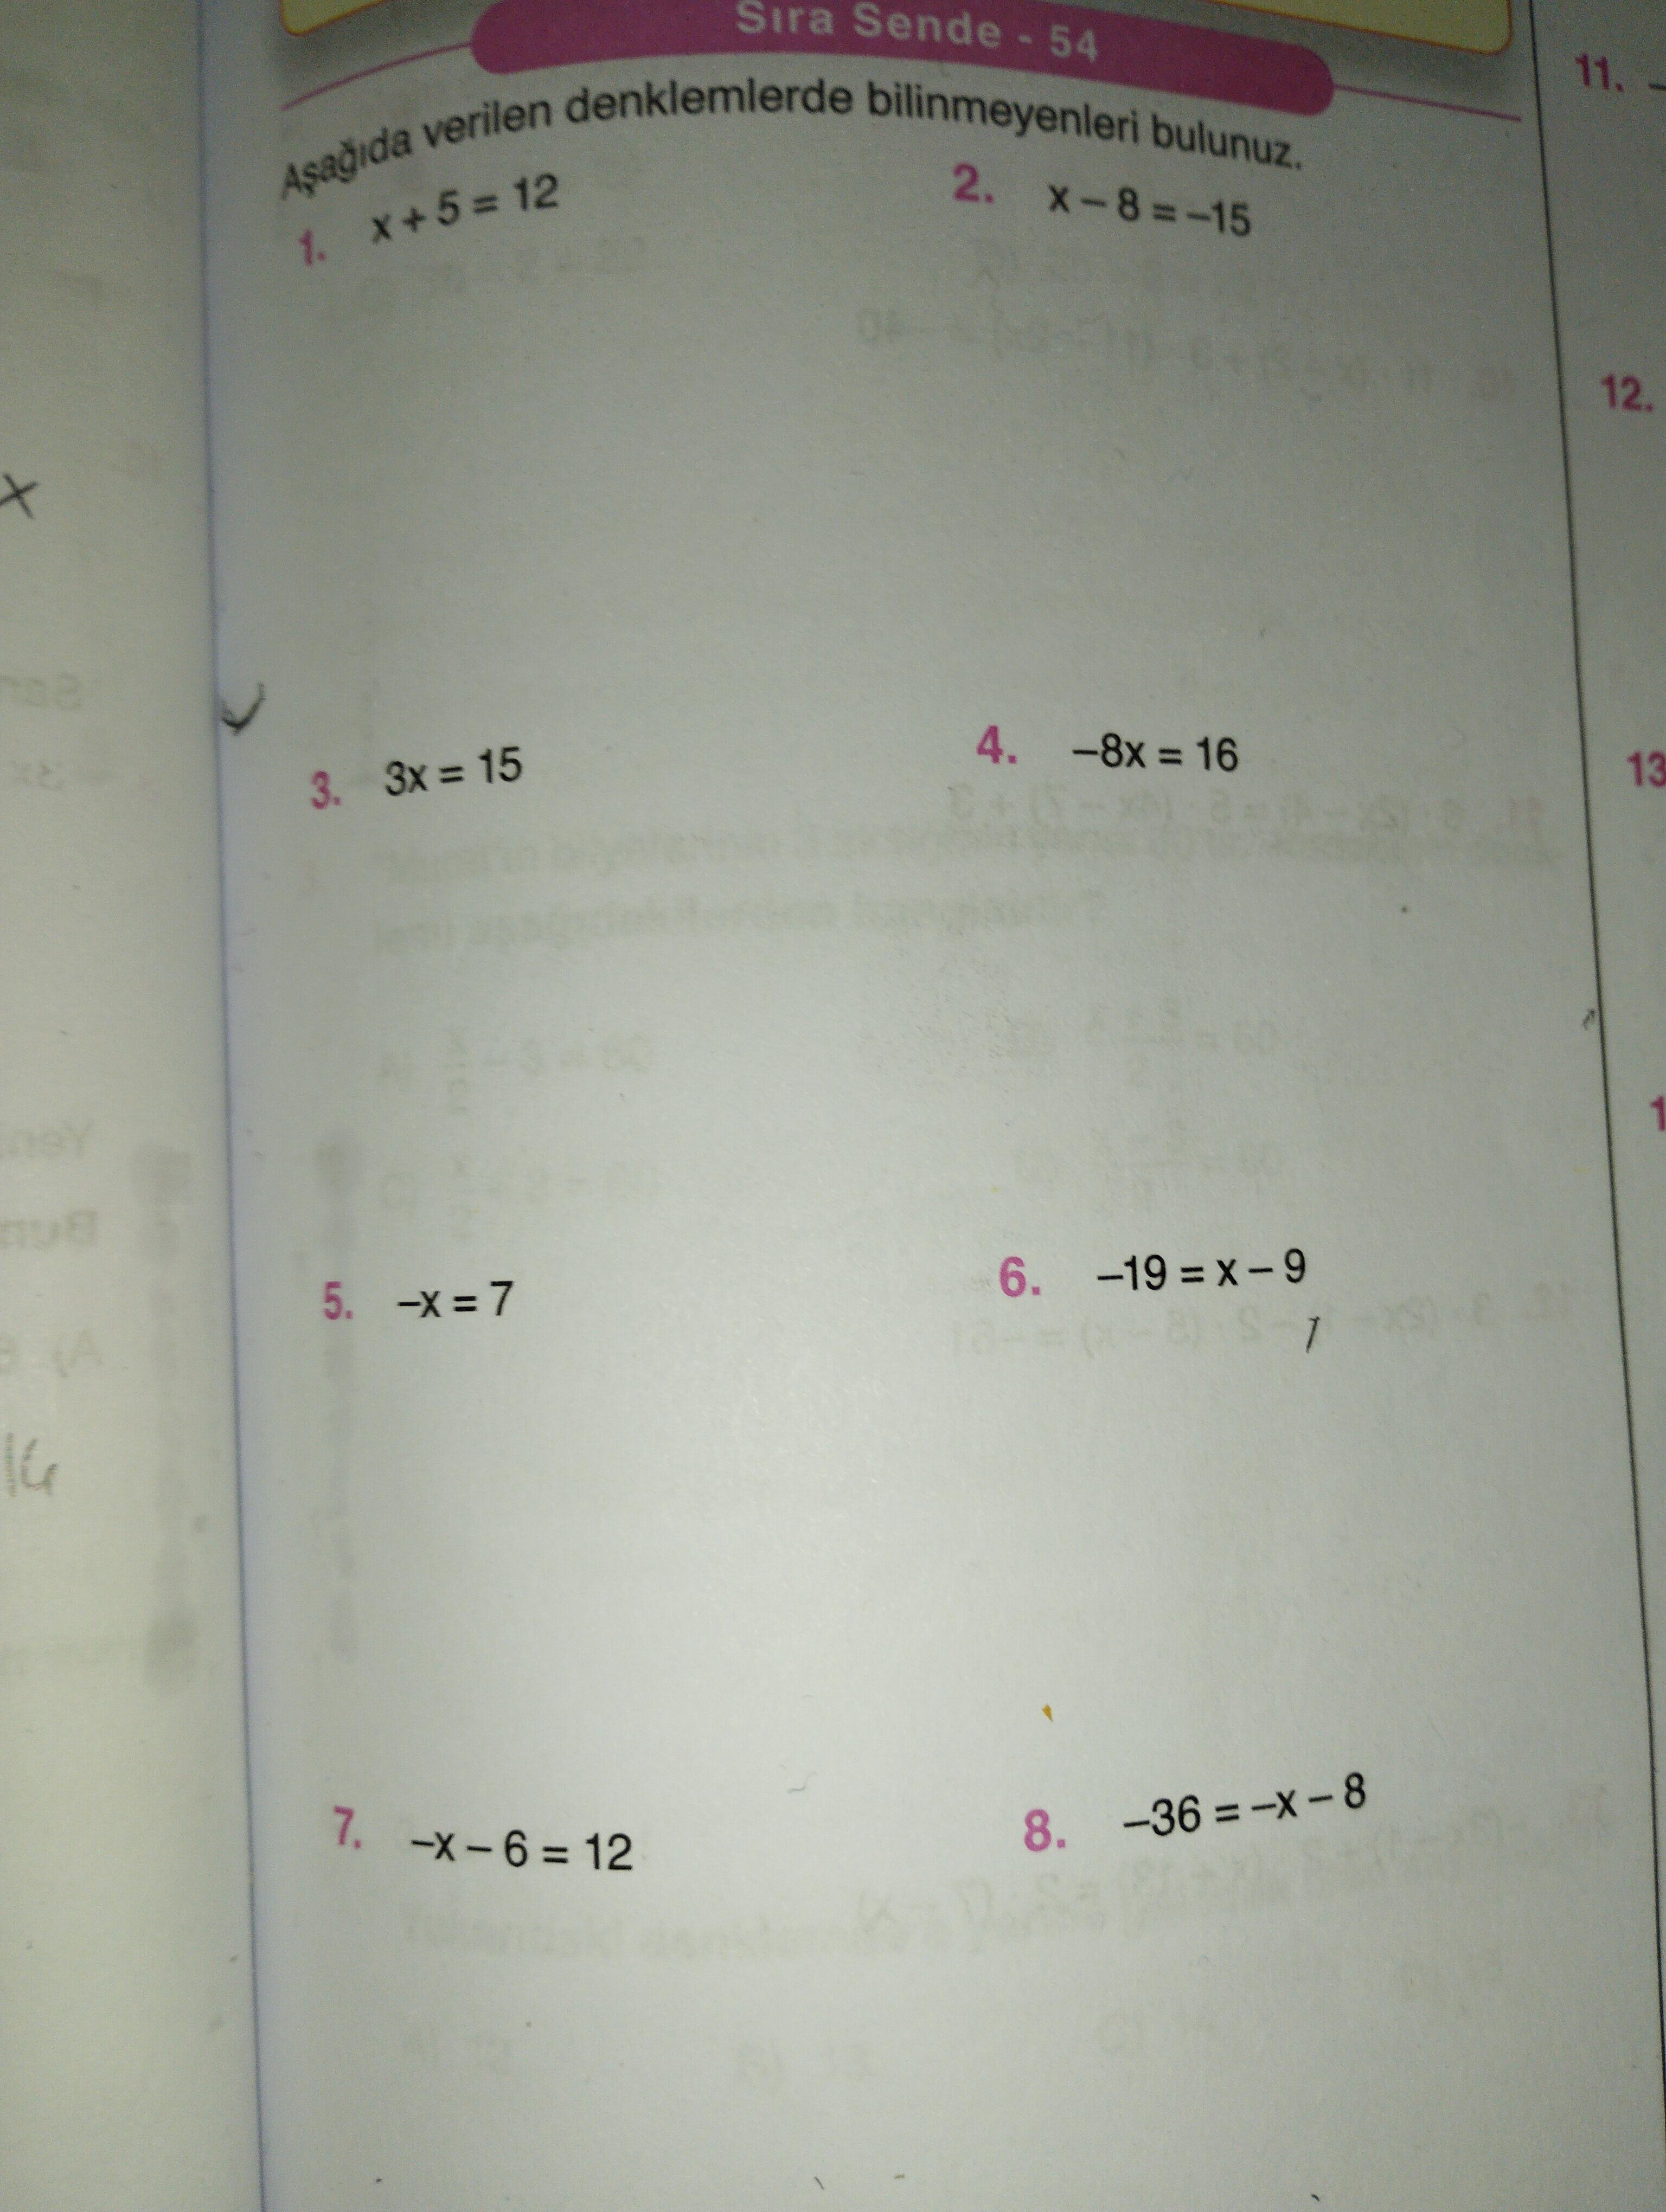 Sıra Sende - 54
Aşağıda verilen denklemlerde bilinmeyenleri bulunuz.
1. x + 5 = 12
2. x – 8 = –15
3. 3x = 15
4. –8x = 16
5. –x = 7
6. –19 = x – 9
7. –x – 6 = 12
8. –36 = –x – 8
11. –
12.
13
1
x
14